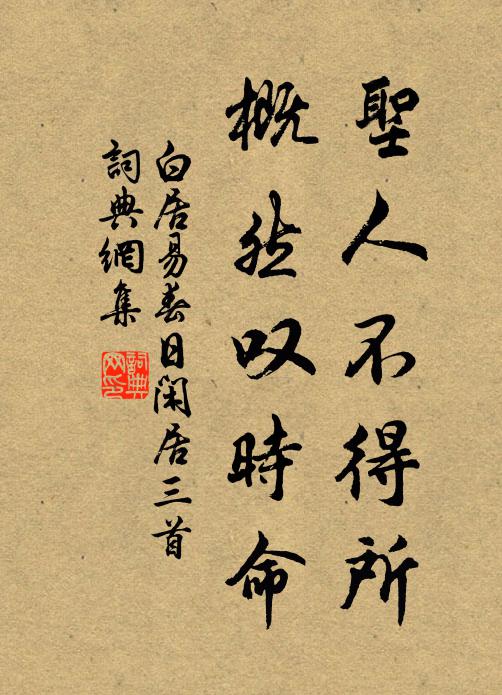 聖人不得所
概然叹時命
白居易春日閑居三首
詞典網集
詞典
网印